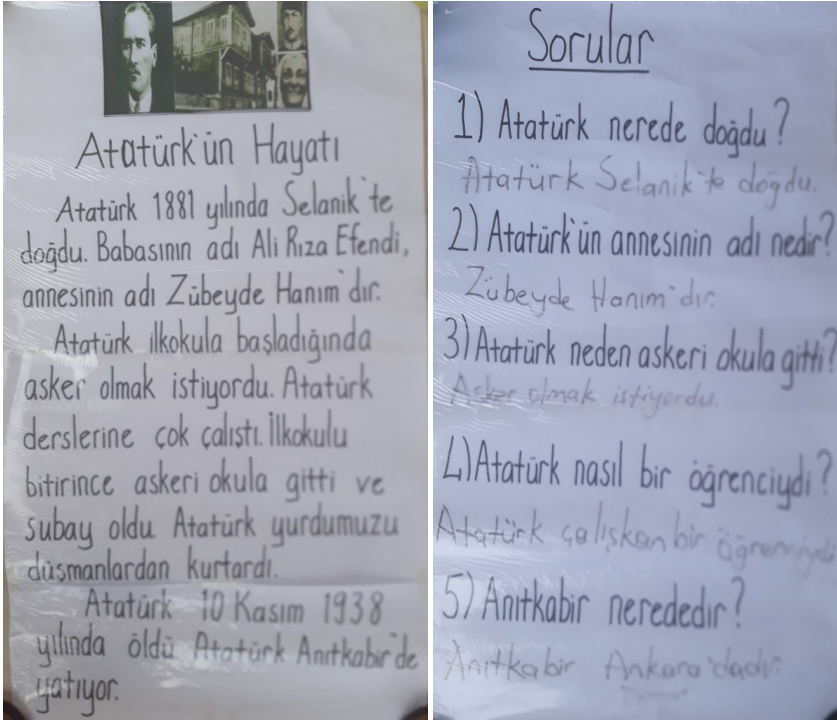 Atatürk'ün Hayatı
Atatürk 1881 yılında Selanik'te
doğdu. Babasının adı Ali Rıza Efendi,
annesinin adı Zübeyde Hanım'dır.
Atatürk ilkokula başladığında
asker olmak istiyordu. Atatürk
derslerine çok çalıştı. İlkokulu
bitirince askeri okula gitti ve
subay oldu. Atatürk yurdumuzu
düşmanlardan kurtardı.
Atatürk 10 Kasım 1938
yılında öldü Atatürk Anıtkabir'de
yatıyor.
Sorular
1) Atatürk nerede doğdu?
Atatürk Selanik'te doğdu.
2) Atatürk'ün annesinin adı nedir?
Zübeyde Hanım'dır.
3) Atatürk neden askeri okula gitti?
Asker olmak istiyordu.
4) Atatürk nasıl bir öğrenciydi?
Atatürk çalışkan bir öğrenciydi
5) Anıtkabir nerededir?
Anıtkabir Ankara'dadır.